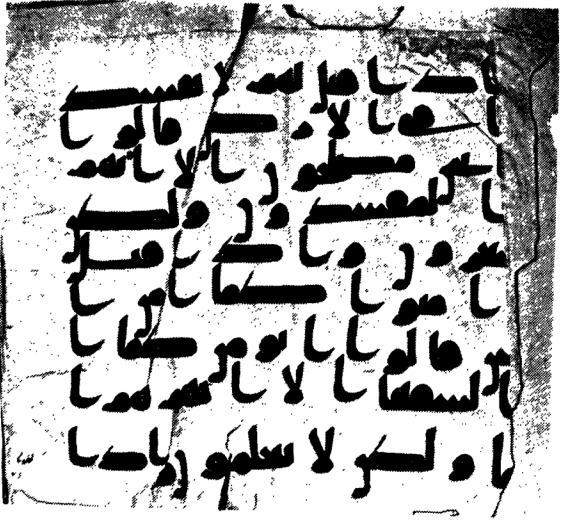 اذا قيل لهم لا تفسد
وا فى الارض قالوا ا
نحن مصلحون الا انهم
المفسدون ولكن
يشعرون واذا قيل
امنوا كما امن ا
س قالوا انومن كما ا
السفها الا انهم هم ا
ا ولكن لا يعلمون واذا